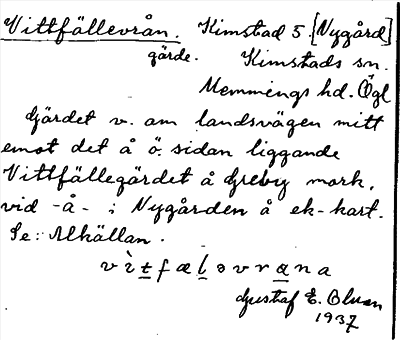 Vittfällevrån. Kimstad 5. [Nygård]
gärde. Kimstads sn.
Memmings hd. Ögl
Gärdet v. om landsvägen mitt
emot det å ö. sidan liggande
Vittfällegärdet å Greby mark,
vid -å- i Nygården å ek-kart.
Se: Alkällan.
v ì t f æ l ə v r a n a
Gustaf E.
1937